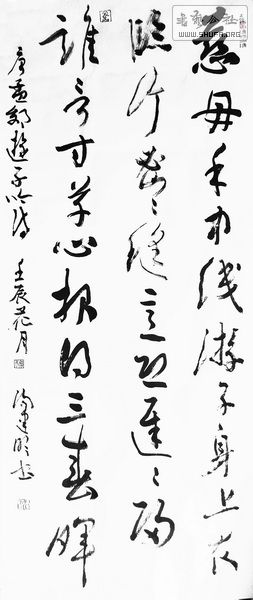 慈母手中线游子身上衣
临行密々缝意恐迟々归
谁言寸草心报得三春晖
唐孟郊遊子吟诗 壬辰花月 建明书
公社
WWW.SHUFA.ORG